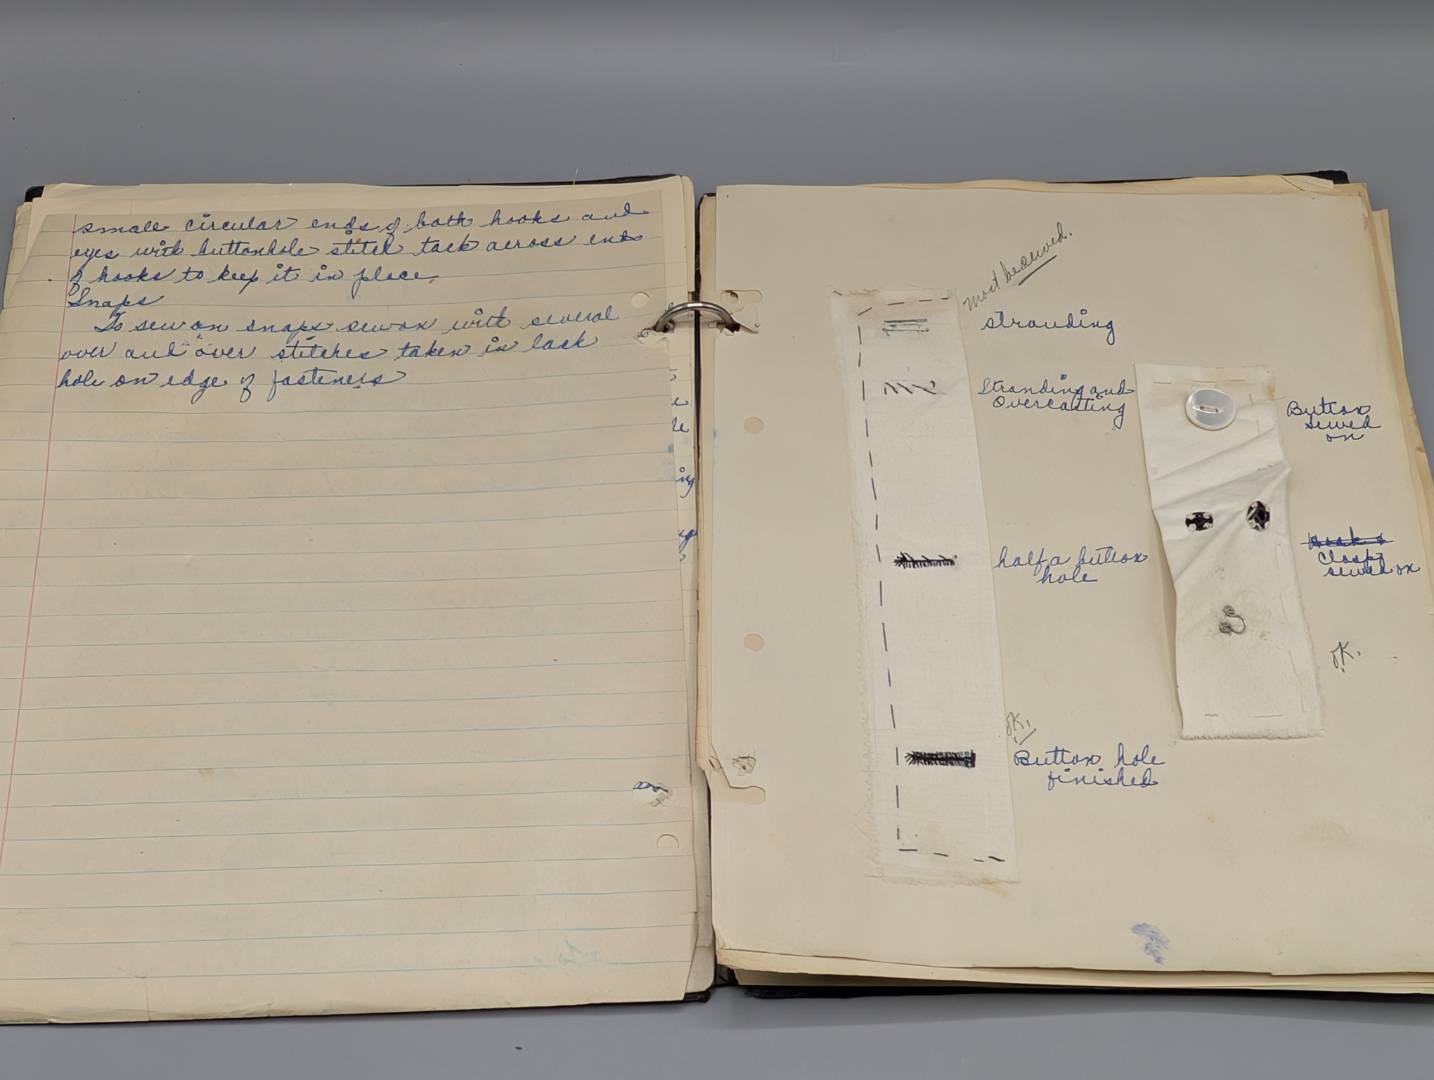 small circular ends of both hooks and
eyes with buttonhole stitch tack across ends
of hooks to keep it in place.
Snaps
To sew on snaps sew on with several
over and over stitches taken in each
hole on edge of fasteners
stranding
Stranding and
Overcasting
half a button
hole
OK.
Button hole
finished
Button
sewed
on
Clasp
sewed on
OK.